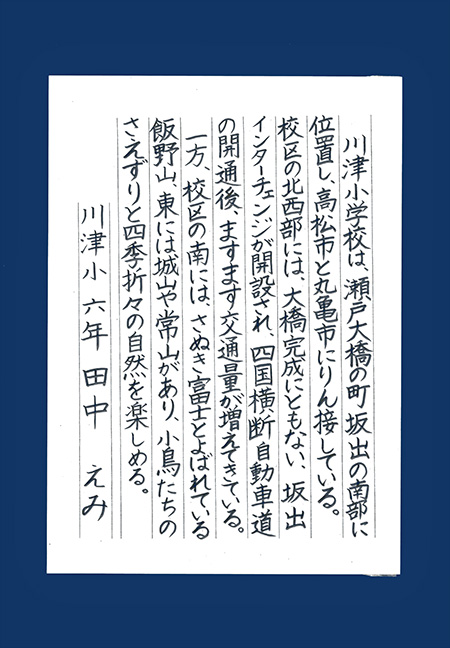 川津小学校は、瀬戸大橋の町坂出の南部に
位置し、高松市と丸亀市にりん接している。
校区の北西部には、大橋完成にともない、坂出
インターチェンジが開設され、四国横断自動車道
の開通後、ますます交通量が増えてきている。
一方、校区の南には、さぬき富士とよばれている
飯野山、東には城山や常山があり、小鳥たちの
さえずりと四季折々の自然を楽しめる。
川津小六年田中えみ